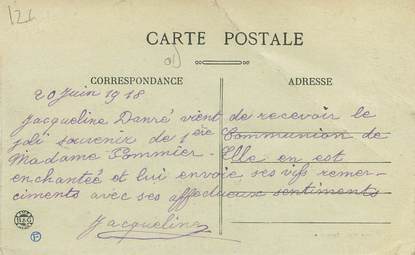 121
CARTE POSTALE
CORRESPONDANCE
ADRESSE
20 Juin 1918
Jacqueline Danré vient de recevoir le
joli souvenir de 1ère Communion de
Madame Pommier - Elle en est
enchantée et lui envoie ses vifs remer-
ciments avec ses affectueux sentiments
Jacqueline